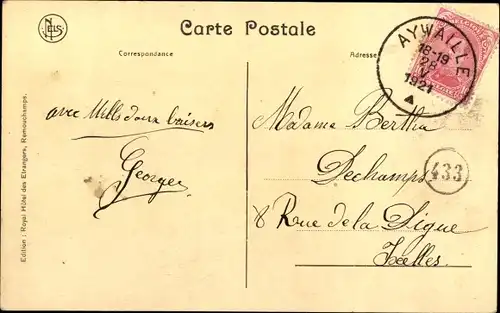 NELS
Carte Postale
Correspondance
Adresse
AYWAILLE
18-19
28
V
1921
avec Mille doux baisers
Georges
Madame Bertha
Dechamps
433
8 Rue de la Digue
Ixelles.
Edition: Royal Hôtel des Etrangers, Remouchamps.